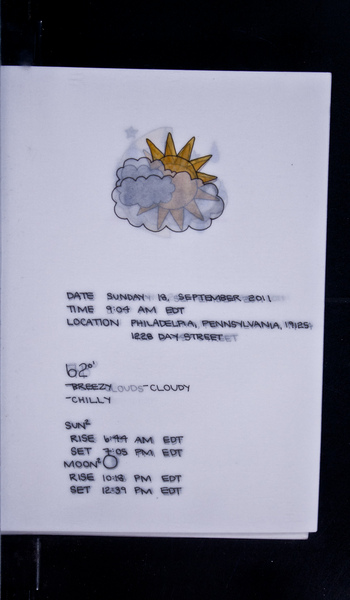 DATE SUNDAY, 18, SEPTEMBER 2011
TIME 9:04 AM EDT
LOCATION PHILADELPIA, PENNSYLVANIA, 19125
1228 DAY STREET
62°'
-BREEZY -CLOUDY
-CHILLY
SUN²
RISE 6:44 AM EDT
SET 7:05 PM EDT
MOON²
RISE 10:18 PM EDT
SET 12:39 PM EDT